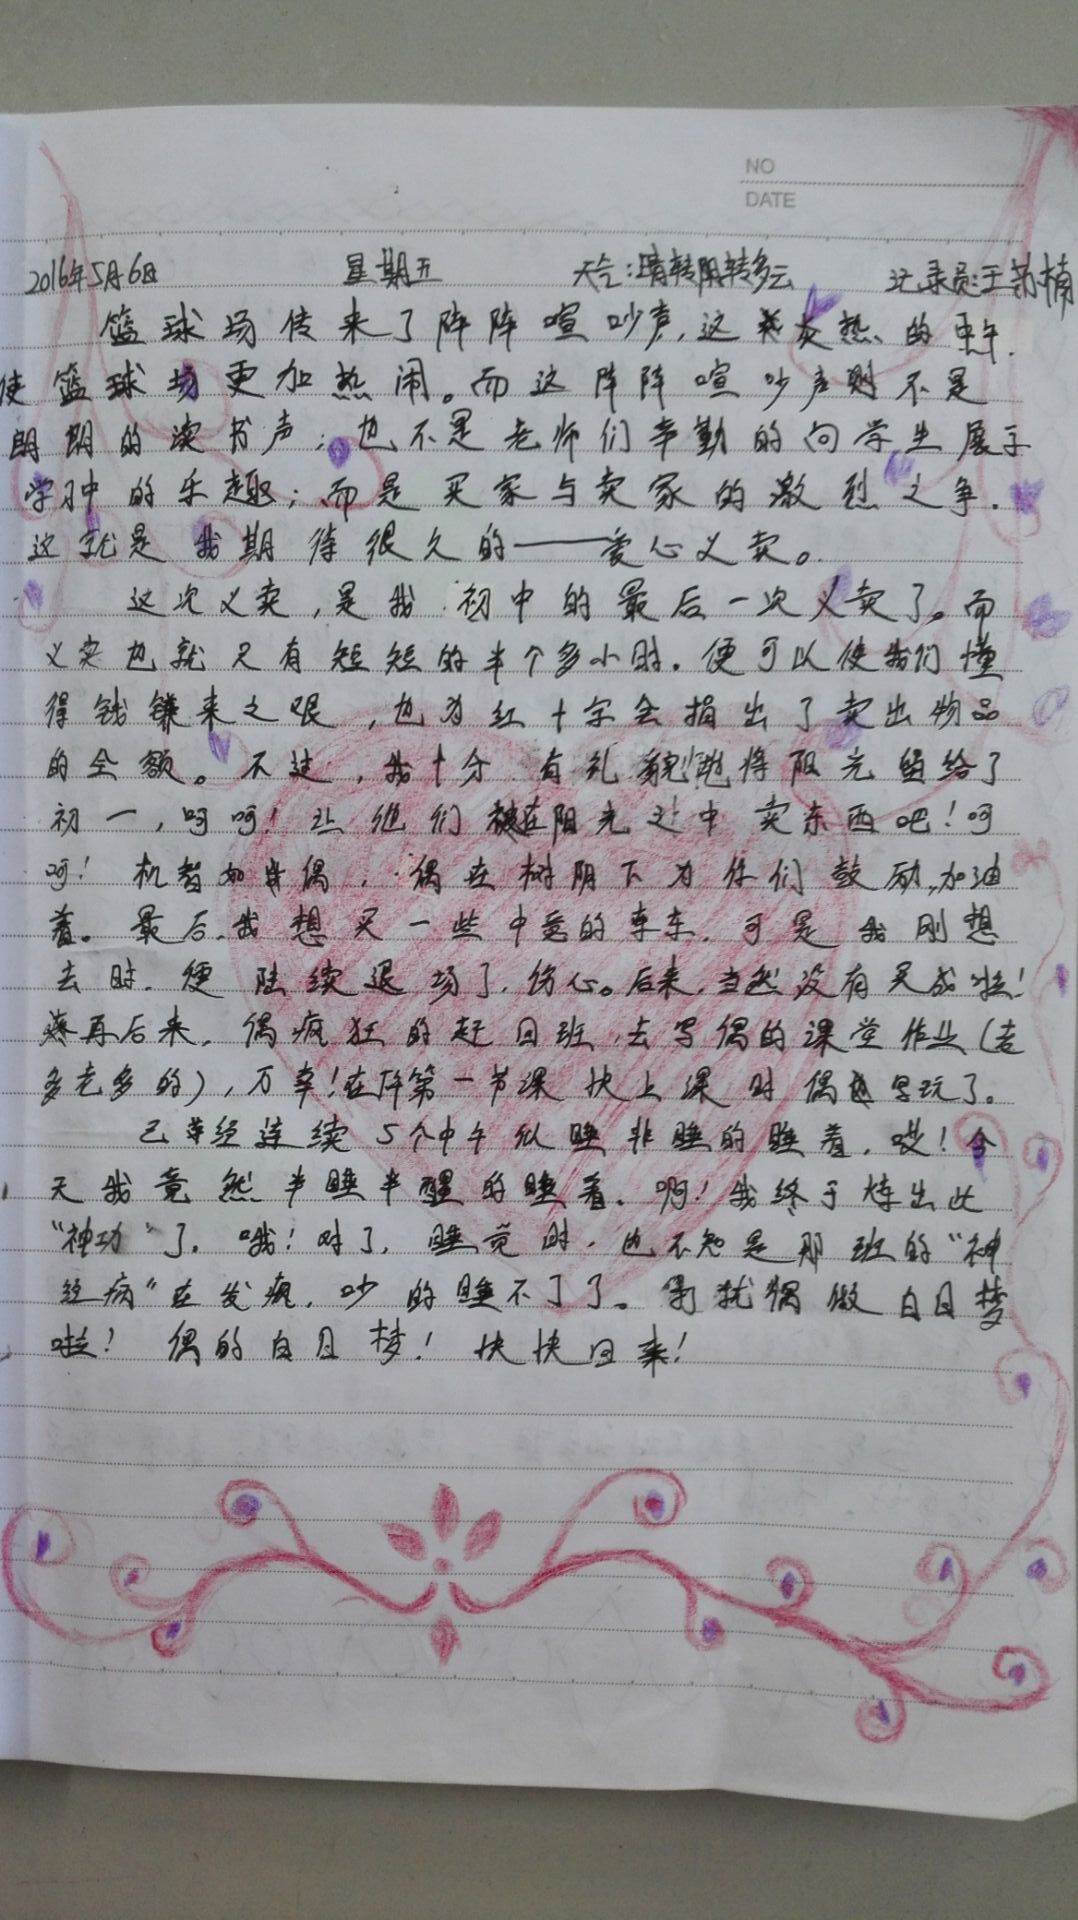 NO
DATE
2016年5月6日 星期五 天气:晴转阴转多云 记录员:王苏楠
篮球场传来了阵阵喧吵声,这炎热的中午,
使篮球场更加热闹。而这阵阵喧吵声则不是
朗朗的读书声;也不是老师们辛勤的向学生展示
学习中的乐趣;而是买家与卖家的激烈之争。
这就是我期待很久的——爱心义卖。
这次义卖,是我初中的最后一次义卖了。而
义卖也就只有短短的半个多小时。便可以使我们懂
得钱赚来之艰,也为红十字会捐出了卖出物品
的全额。不过,我十分有礼貌地将阳光留给了
初一,呵呵!让他们在阳光之中卖东西吧!呵
呵!机智如偶,偶在树阴下为你们鼓励,加油
着。最后,我想买一些中意的东东,可是我刚想
去时,便陆续退场了,伤心。后来,当然没有买成啦!
再后来,偶疯狂的赶回班,去写偶的课堂作业(老
多老多的),万幸!在下午第一节课快上课时偶写玩了。
已经连续5个中午似睡非睡的睡着,哎!今
天我竟然半睡半醒的睡着。啊!我终于炼出此
“神功”了。哦!对了,睡觉时,也不知是那班的“神
经病”在发疯,吵的睡不了了。打扰偶做白日梦
啦!偶的白日梦!快快回来!